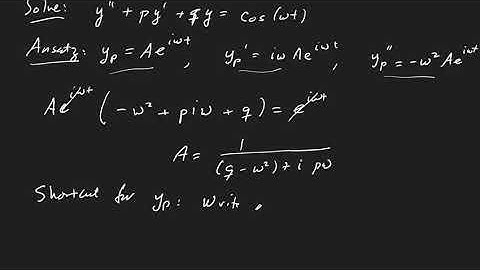 Solve: y'' + py' + qy = cos(ωt)
Ansatz: y_p = Ae^{iωt}, y_p' = iωAe^{iωt}, y_p'' = -ω²Ae^{iωt}
Ae^{iωt} (-ω² + piω + q) = e^{iωt}
A = 1 / ((q - ω²) + i pω)
Shortcut for y_p: Write